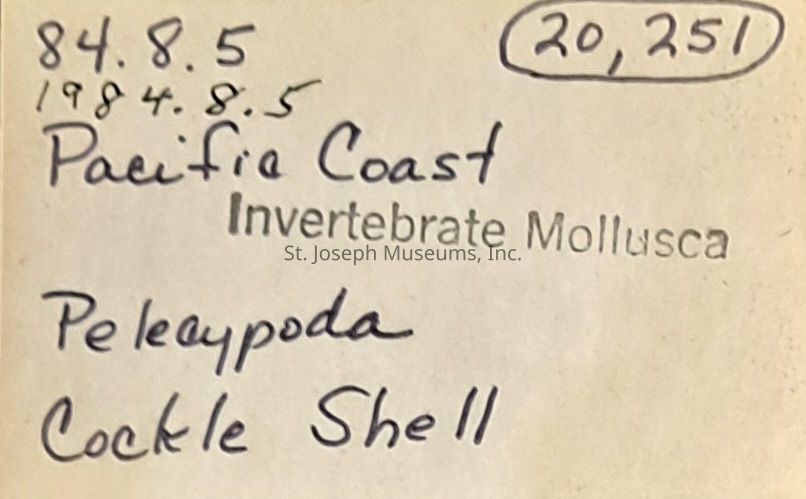 84.8.5
20,251
1984.8.5
Pacific Coast
Invertebrate Mollusca
St. Joseph Museums, Inc.
Pelecypoda
Cockle Shell